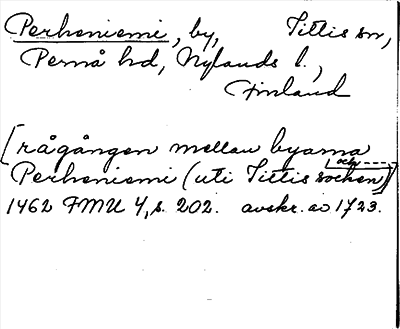 Perheniemi, by, Tittis sn,
Pernå hd, Nylands l.,
Finland
[rågången mellan byarna
och ----
Perheniemi (uti Tittis socken)]
1462 FMU 4, s. 202. avskr. av 1723.